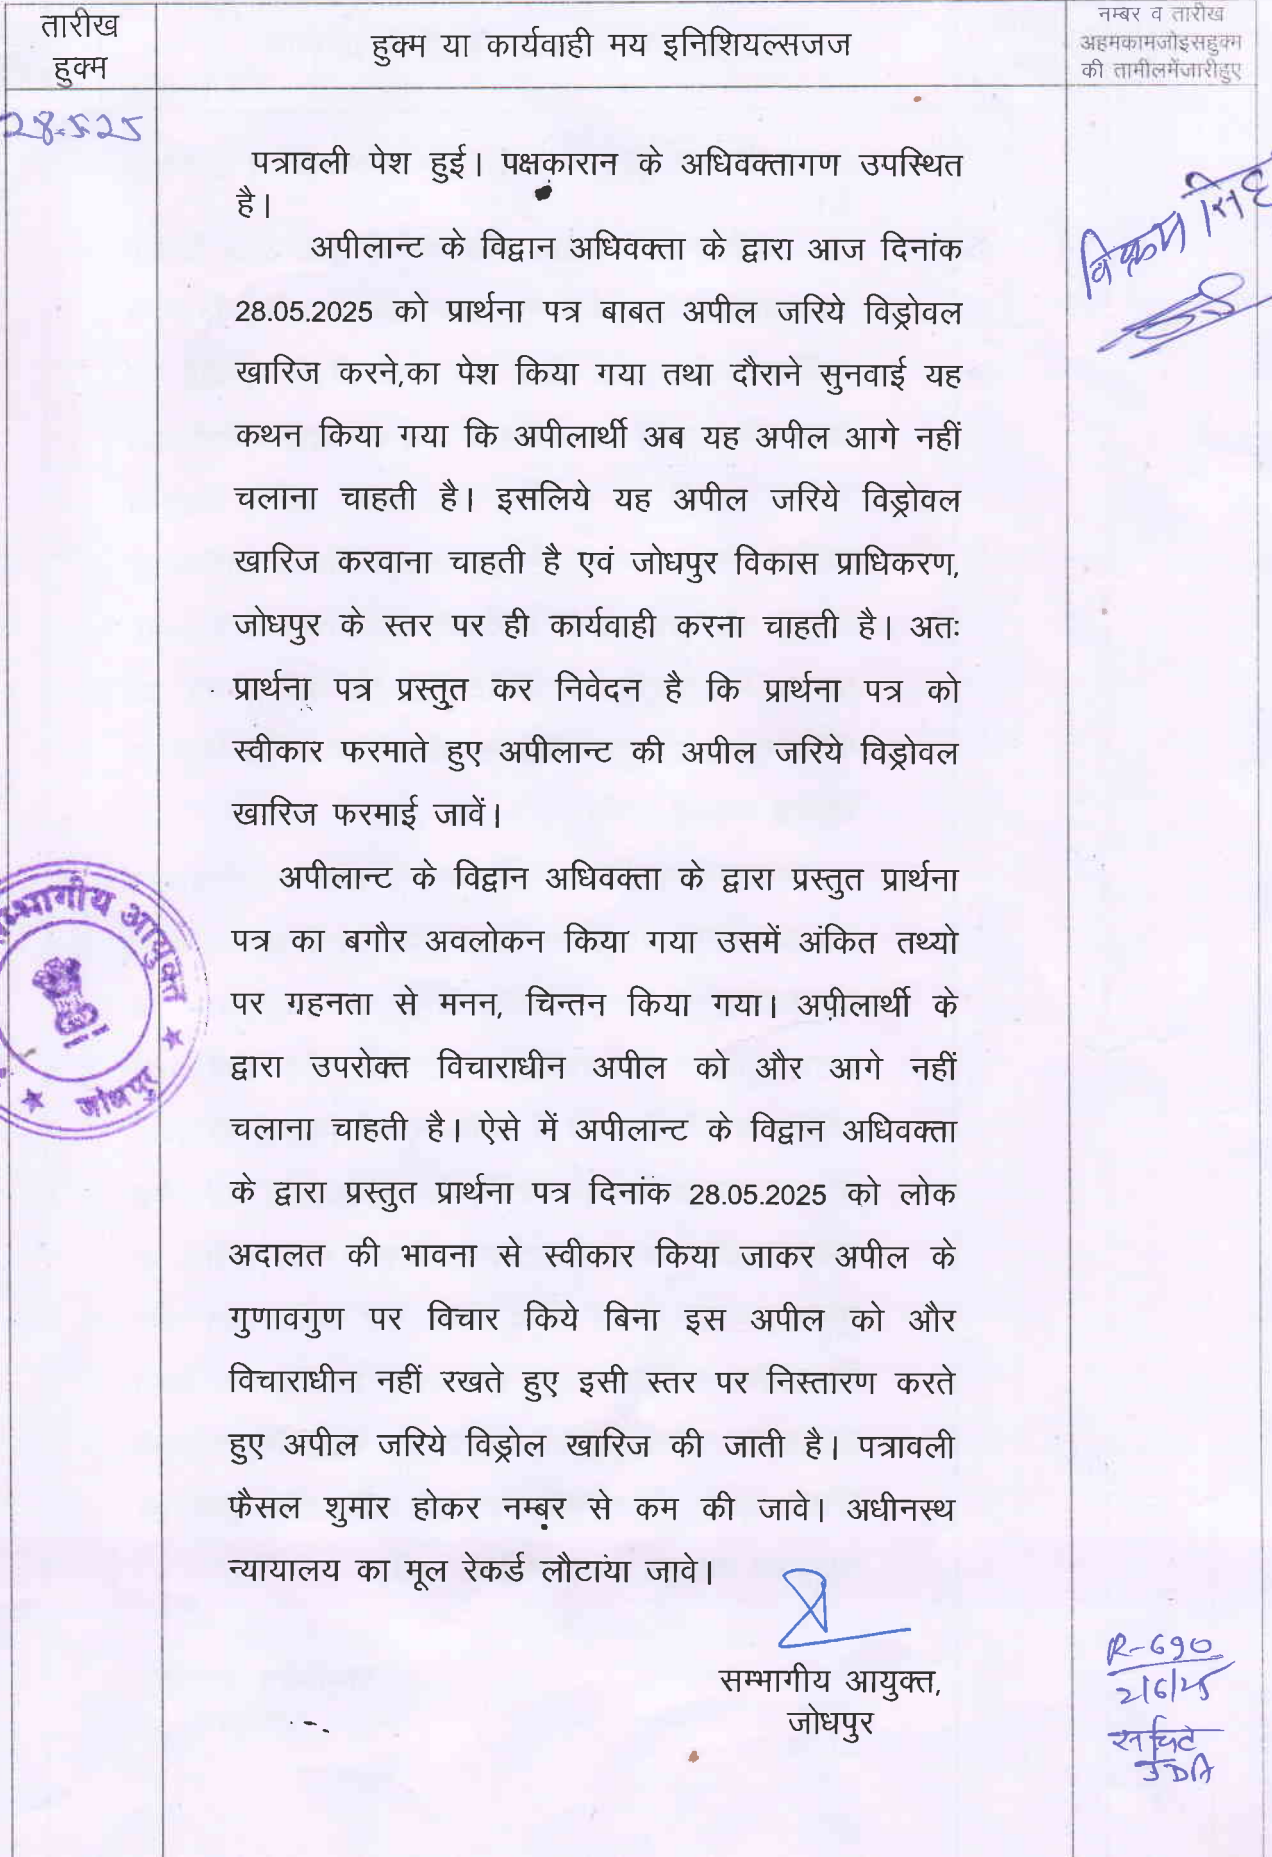 तारीख
हुक्म
हुक्म या कार्यवाही मय इनिशियल्सजज
नम्बर व तारीख
अहमकामजोइसहुक्म
की तामीलमेंजारीहुए
28.5.25
पत्रावली पेश हुई। पक्षकारान के अधिवक्तागण उपस्थित
है।
अपीलान्ट के विद्वान अधिवक्ता के द्वारा आज दिनांक
28.05.2025 को प्रार्थना पत्र बाबत अपील जरिये विड्रोवल
खारिज करने,का पेश किया गया तथा दौराने सुनवाई यह
कथन किया गया कि अपीलार्थी अब यह अपील आगे नहीं
चलाना चाहती है। इसलिये यह अपील जरिये विड्रोवल
खारिज करवाना चाहती है एवं जोधपुर विकास प्राधिकरण,
जोधपुर के स्तर पर ही कार्यवाही करना चाहती है। अतः
प्रार्थना पत्र प्रस्तुत कर निवेदन है कि प्रार्थना पत्र को
स्वीकार फरमाते हुए अपीलान्ट की अपील जरिये विड्रोवल
खारिज फरमाई जावें।
अपीलान्ट के विद्वान अधिवक्ता के द्वारा प्रस्तुत प्रार्थना
पत्र का बगौर अवलोकन किया गया उसमें अंकित तथ्यो
पर गहनता से मनन, चिन्तन किया गया। अपीलार्थी के
द्वारा उपरोक्त विचाराधीन अपील को और आगे नहीं
चलाना चाहती है। ऐसे में अपीलान्ट के विद्वान अधिवक्ता
के द्वारा प्रस्तुत प्रार्थना पत्र दिनांक 28.05.2025 को लोक
अदालत की भावना से स्वीकार किया जाकर अपील के
गुणावगुण पर विचार किये बिना इस अपील को और
विचाराधीन नहीं रखते हुए इसी स्तर पर निस्तारण करते
हुए अपील जरिये विड्रोल खारिज की जाती है। पत्रावली
फैसल शुमार होकर नम्बर से कम की जावे। अधीनस्थ
न्यायालय का मूल रेकर्ड लौटाया जावे।
सम्भागीय आयुक्त,
जोधपुर
विक्रम सिंह
आयुक्त
जोधपुर
R-690
2/6/25
सचिव
JDA